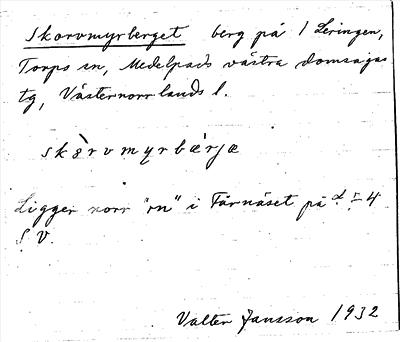 Skorvmyrberget berg på 1 Leringen,
Torps sn, Medelpads västra domsagas
tg, Västernorrlands l.
skɔ̀rvmyrbærjæ
Ligger norr "rn" i Färnäset på d:r 4
S V.
Valter Jansson 1932